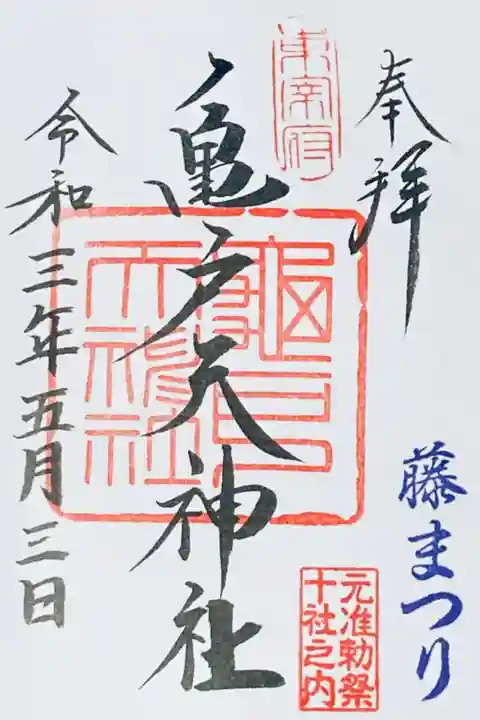 奉拝
藤まつり
東宰府
元准勅祭
十社之内
亀戸天神社
龜戸
天神社
令和三年五月三日